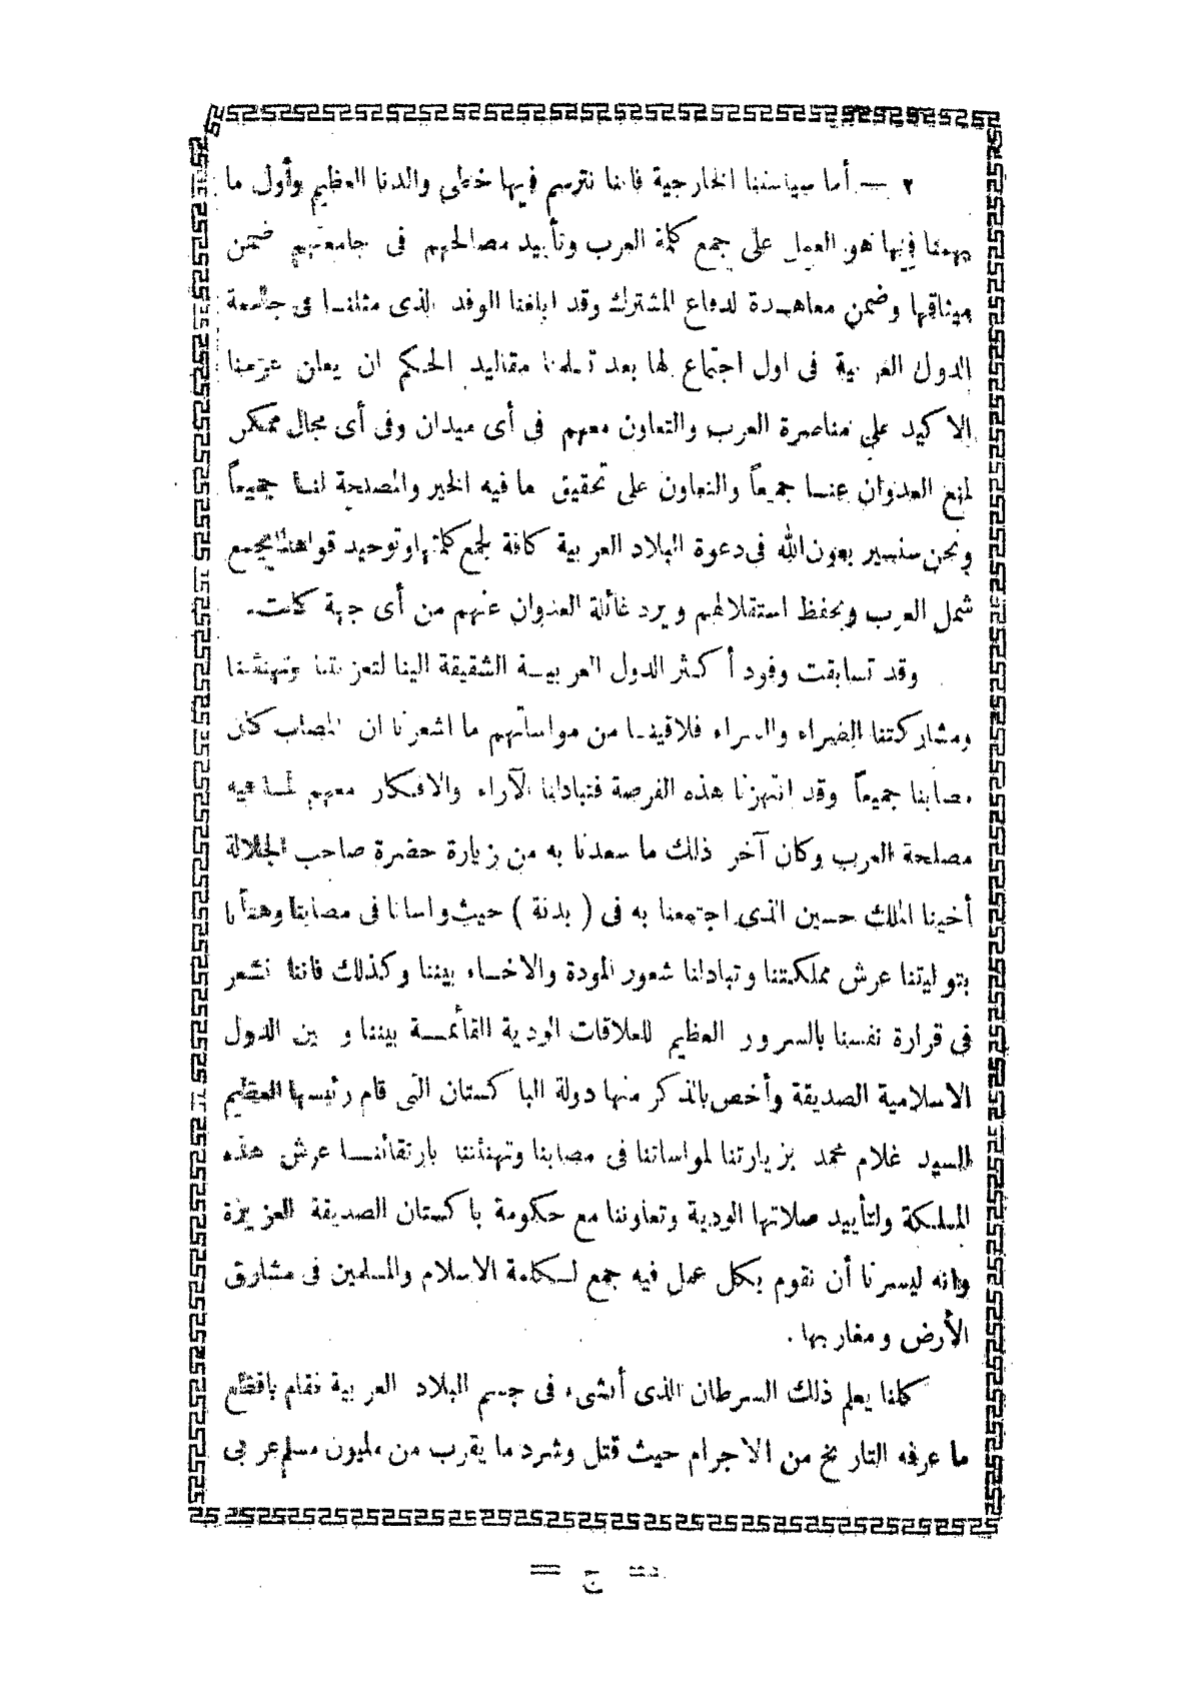 ٢ — أما سياستنا الخارجية فاننا نترسم فيها خطى والدنا العظيم وأول ما
يهمنا فيها هو العمل على جمع كلمة العرب وتأييد مصالحهم فى جامعتهم ضمن
ميثاقها وضمن معاهدة لدفاع المشترك وقد ابلغنا الوفد الذى مثلنا فى جامعة
الدول العربية فى اول اجتماع لها بعد تسلمنا مقاليد الحكم ان يعلن عزمنا
الاكيد على مناصرة العرب والتعاون معهم فى أى ميدان وفى أى مجال ممكن
لمنع العدوان عنا جميعاً والتعاون على تحقيق ما فيه الخير والمصلحة لنا جميعاً
ونحن سنسير بعون الله فى دعوة البلاد العربية كافة لجمع كلمتها وتوحيد قواها لجمع
شمل العرب وبحفظ استقلالهم ويرد غائلة العدوان عنهم من أى جهة كانت.
وقد تسابقت وفود أكثر الدول العربية الشقيقة الينا لتعزيتنا وتهنئتنا
ومشاركتنا الضراء والسراء فلاقينا من مواساتهم ما اشعرنا ان المصاب كان
مصابنا جميعاً وقد انتهزنا هذه الفرصة فتبادلنا الآراء والافكار معهم لما فيه
مصلحة العرب وكان آخر ذلك ما سعدنا به من زيارة حضرة صاحب الجلالة
أخينا الملك حسين الذى اجتمعنا به فى ( بدنة ) حيث واسانا فى مصابنا وهنأنا
بتوليتنا عرش مملكتنا وتبادلنا شعور المودة والاخاء بيننا وكذلك فاننا نشعر
فى قرارة نفسنا بالسرور العظيم للعلاقات الودية القائمة بيننا وبين الدول
الاسلامية الصديقة وأخص بالذكر منها دولة الباكستان التى قام رئيسها العظيم
السيد غلام محمد بزيارتنا لمواساتنا فى مصابنا وتهنئتنا بارتقائنا عرش هذه
المملكة ولتأييد صلاتها الودية وتعاوننا مع حكومة باكستان الصديقة العزيزة
وانه ليسرنا أن نقوم بكل عمل فيه جمع لكلمة الاسلام والمسلمين فى مشارق
الأرض ومغاربها .
كلنا يعلم ذلك السرطان الذى أنشىء فى جسم البلاد العربية فقام بافظع
ما عرفه التاريخ من الاجرام حيث قتل وشرد ما يقرب من مليون مسلم عربى
= ج =